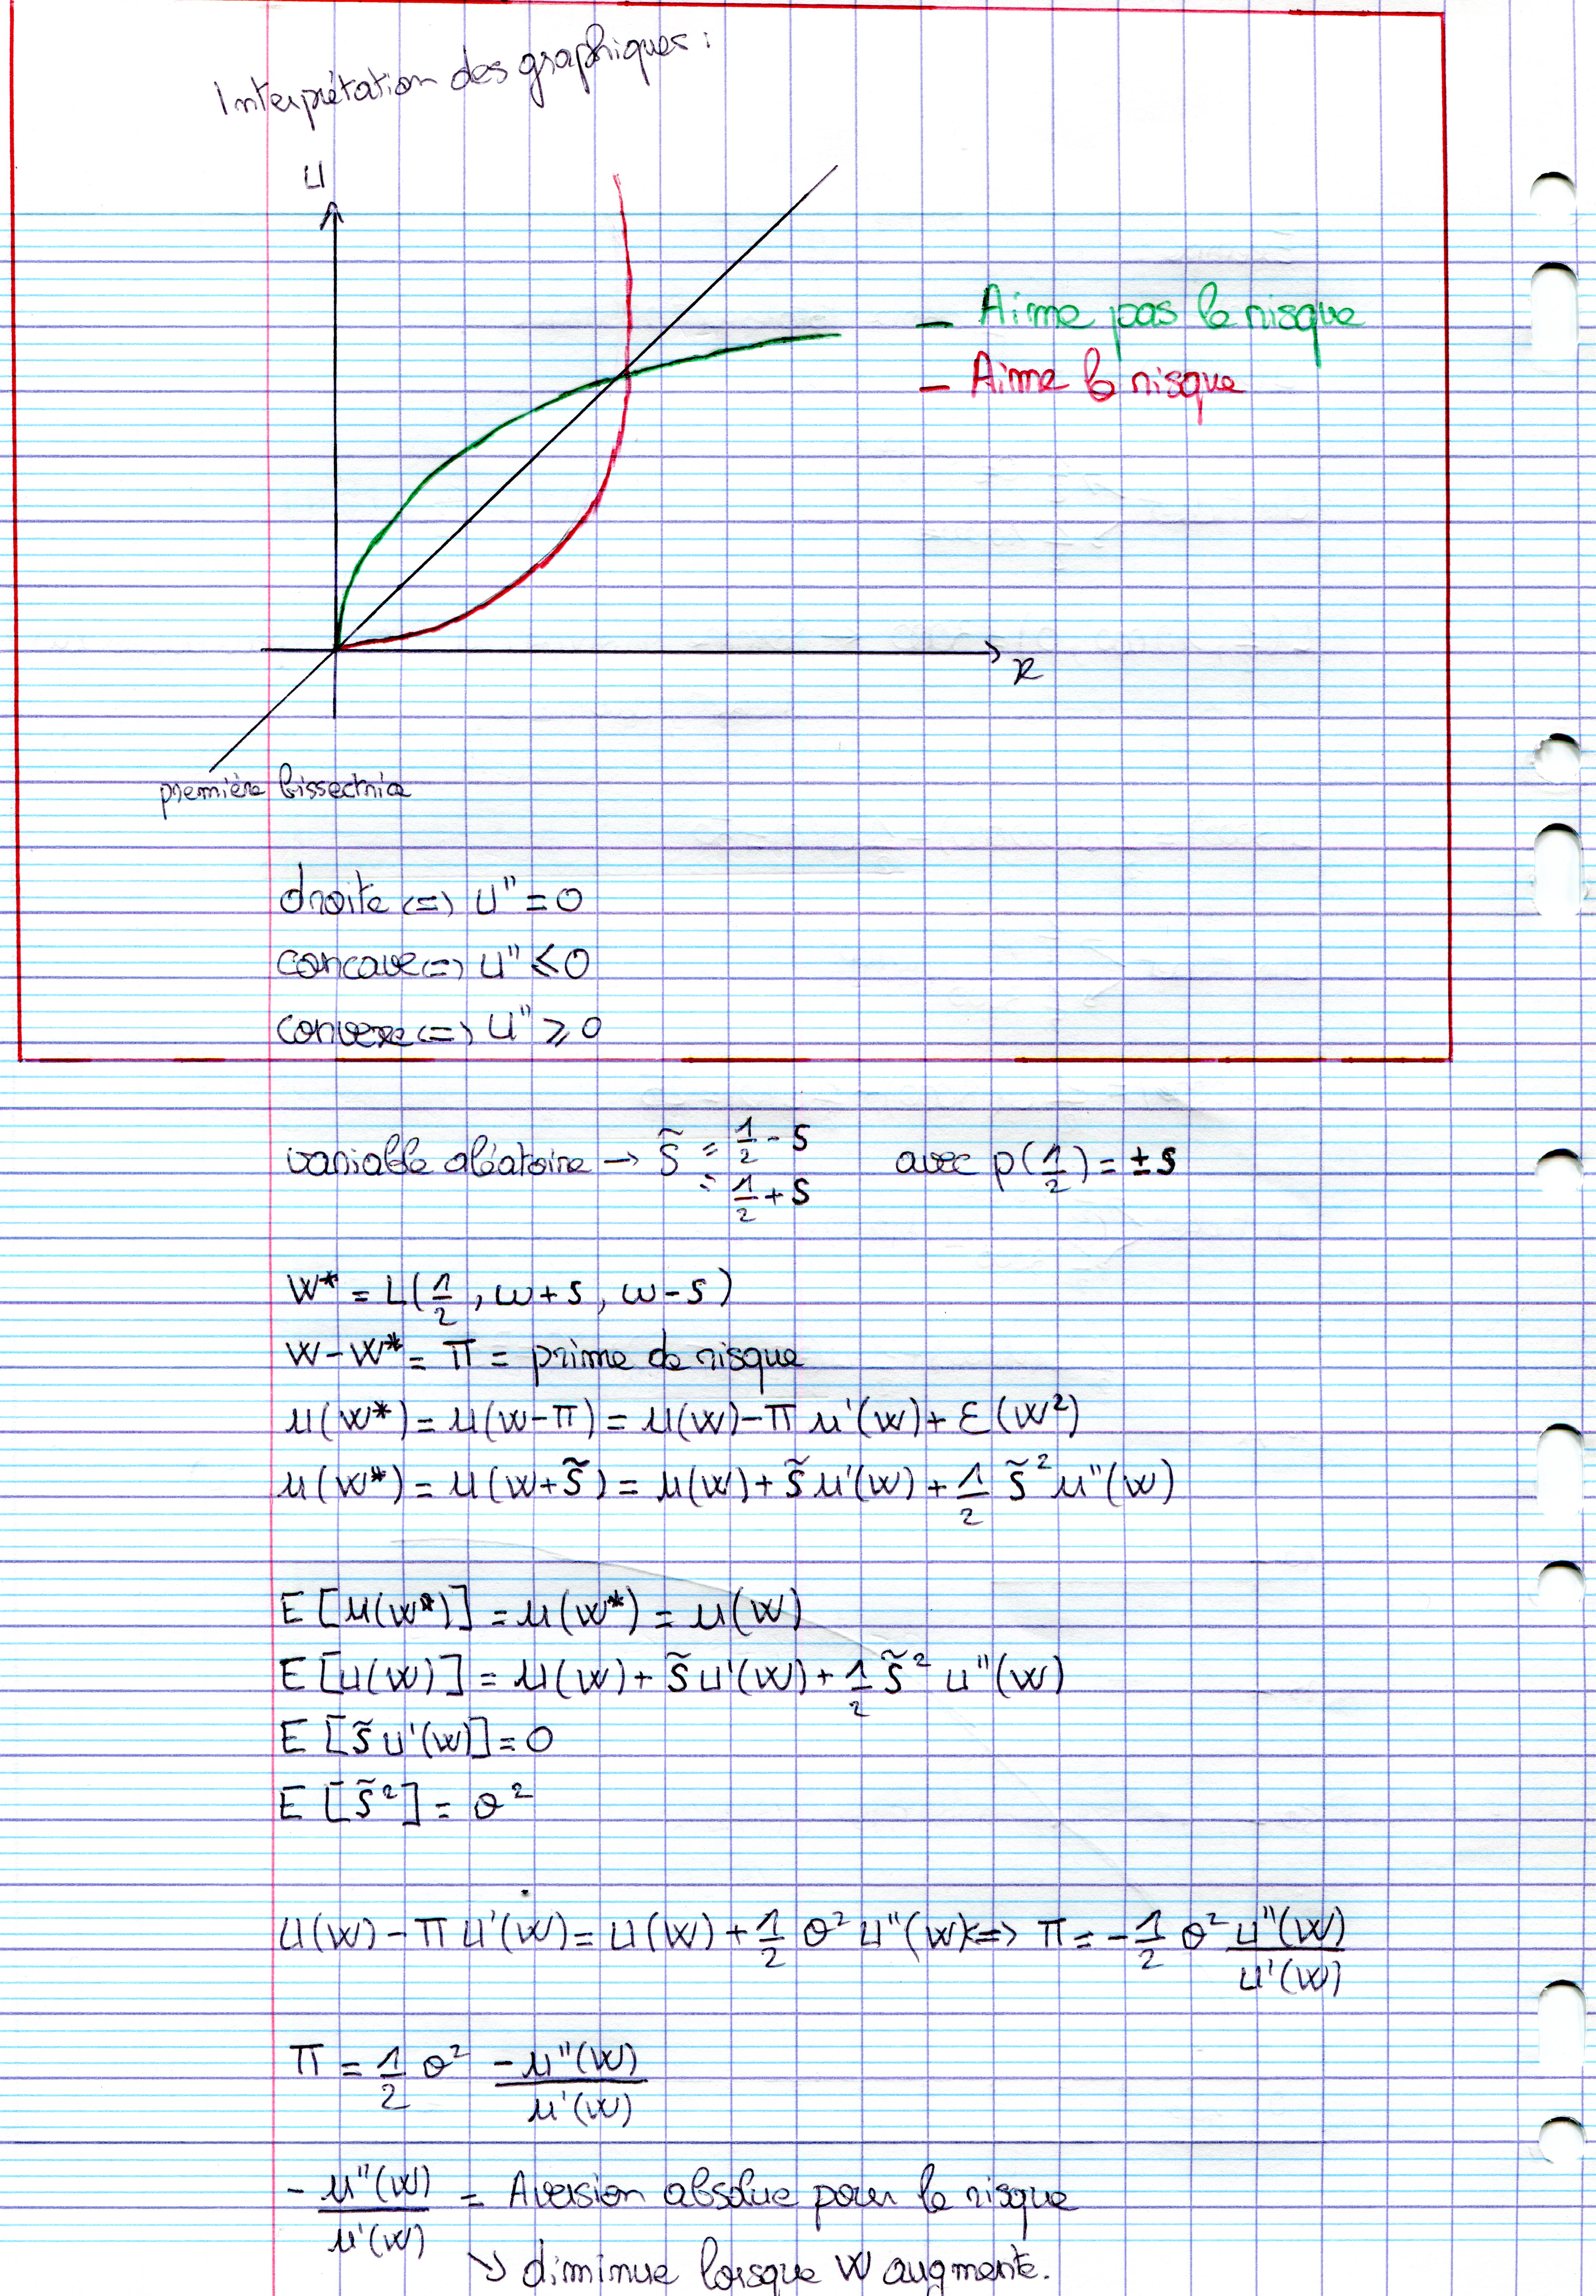 Interprétation des graphiques :
U
- Aime pas le risque
- Aime le risque
R
première bissectrice
droite <=> U'' = 0
concave <=> U'' ≤ 0
convexe <=> U'' ≥ 0
variable aléatoire → s̃ = 1/2 - s avec p(1/2) = ±s
= 1/2 + s
W* = L(1/2, w+s, w-s)
W-W* = π = prime de risque
u(W*) = u(W-π) = u(W) - π u'(W) + ε(W²)
u(W*) = u(W+s̃) = u(W) + s̃ u'(W) + 1/2 s̃² u''(W)
E[u(W*)] = u(W*) = u(W)
E[U(W)] = u(W) + s̃ U'(W) + 1/2 s̃² U''(W)
E[s̃ U'(W)] = 0
E[s̃²] = σ²
U(W) - π U'(W) = U(W) + 1/2 σ² U''(W) <=> π = -1/2 σ² U''(W)/U'(W)
π = 1/2 σ² -u''(W)/u'(W)
- u''(W)/u'(W) = Aversion absolue pour le risque
↘ diminue lorsque W augmente.